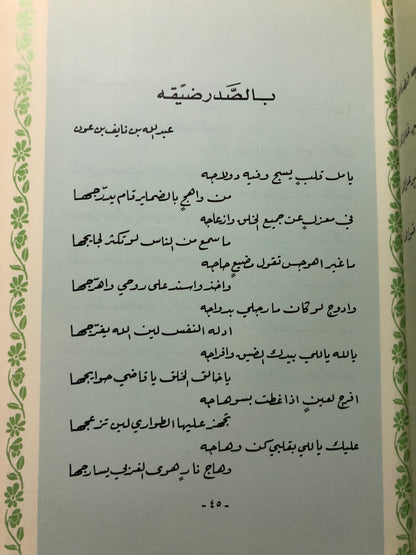 بالصَّدر ضيّقه
عبدالله بن نايف بن عون
يا مل قلبٍ يسج وفيه دولاجه
من واهجٍ بالضماير قام يدرّجها
في معزلٍ عن جميع الخلق وازعاجه
ما سمع من الناس لو تكثر لجايجها
ما غير اهوجس تقول مضيعٍ حاجه
واخذ واسند على روحي واهرّجها
وادوج لو كان ما رجلي بدواجه
ادله النفس لين الله يفرّجها
يا لله ياللي بيدك الضيق وافراجه
يا خالق الخلق يا قاضي حوايجها
افرج لعينٍ اذا غطت بسوهاجه
تجهز عليها الطواري لين تزعجها
عليك ياللي بقلبي كن وهاجه
وهاج نارٍ هوى الغربي يسارجها
- ٤٥ -